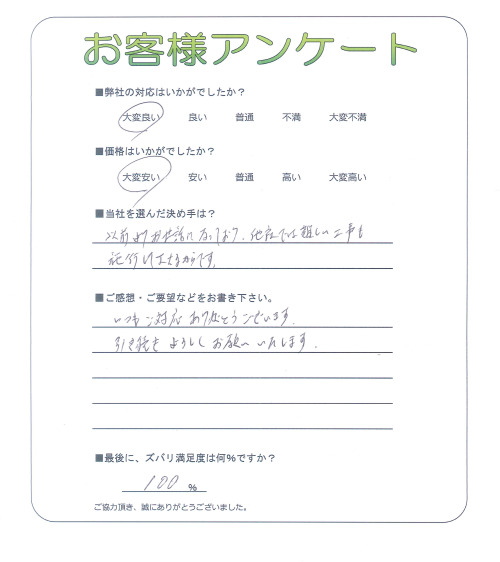 お客様アンケート
■弊社の対応はいかがでしたか？
大変良い 良い 普通 不満 大変不満
■価格はいかがでしたか？
大変安い 安い 普通 高い 大変高い
■当社を選んだ決め手は？
以前よりお世話になっており、他社では難しい工事も
施行して下さるからです。
■ご感想・ご要望などをお書き下さい。
いつもご対応ありがとうございます。
引き続きよろしくお願いいたします。
■最後に、ズバリ満足度は何%ですか？
100 %
ご協力頂き、誠にありがとうございました。